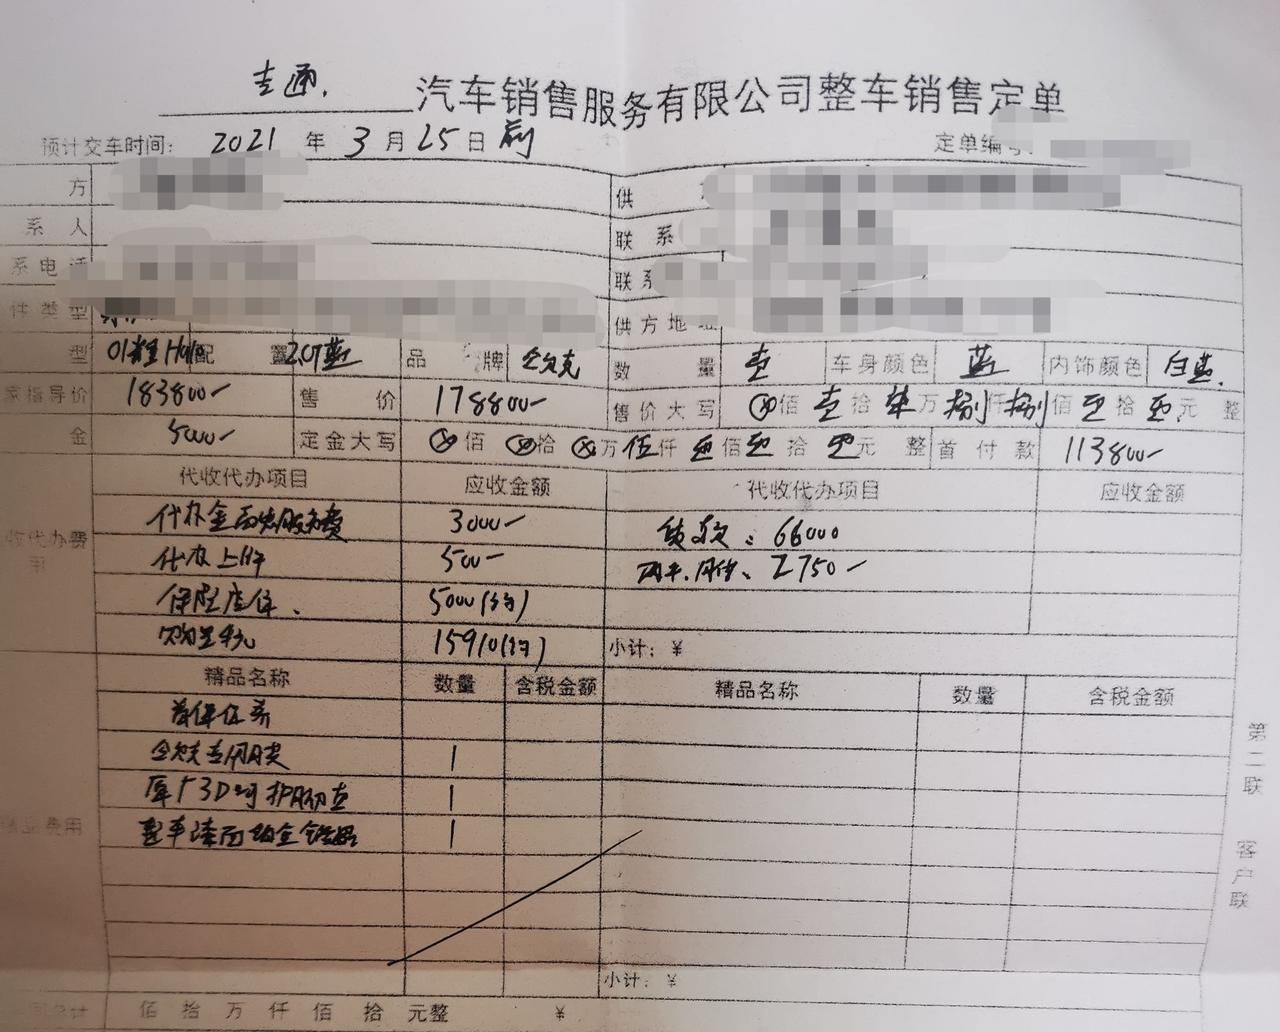 吉通. 汽车销售服务有限公司整车销售定单
预计交车时间: 2021 年 3 月 25 日前 定单编号:
方 供
系 人 联 系
系电话 联系
件类型 供方地址
型 01 配 置 2.0T蓝 品 牌 数 量 壹 车身颜色 蓝 内饰颜色 白蓝.
家指导价 183800- 售 价 178800- 售价大写 ⊗佰 壹拾 柒万 捌仟 捌佰 零拾 零元 整
金 5000- 定金大写 ⊗佰 ⊗拾 ⊗万 伍仟 零佰 零拾 零元 整 首付款 113800-
代收代办项目 应收金额 代收代办项目 应收金额
收代办费用
代办金融服务费 3000- 贷款: 66000
代办上牌 500- 两年.月供: 2750-
保险 5000(约)
购置税 15910(约) 小计: ¥
精品名称 数量 含税金额 精品名称 数量 含税金额
首保
专用脚垫 1
原厂3D 护 1
整车漆面镀金 1
精品费用
小计: ¥
合同总计 佰 拾 万 仟 佰 拾 元整 ¥
第二联
客户联